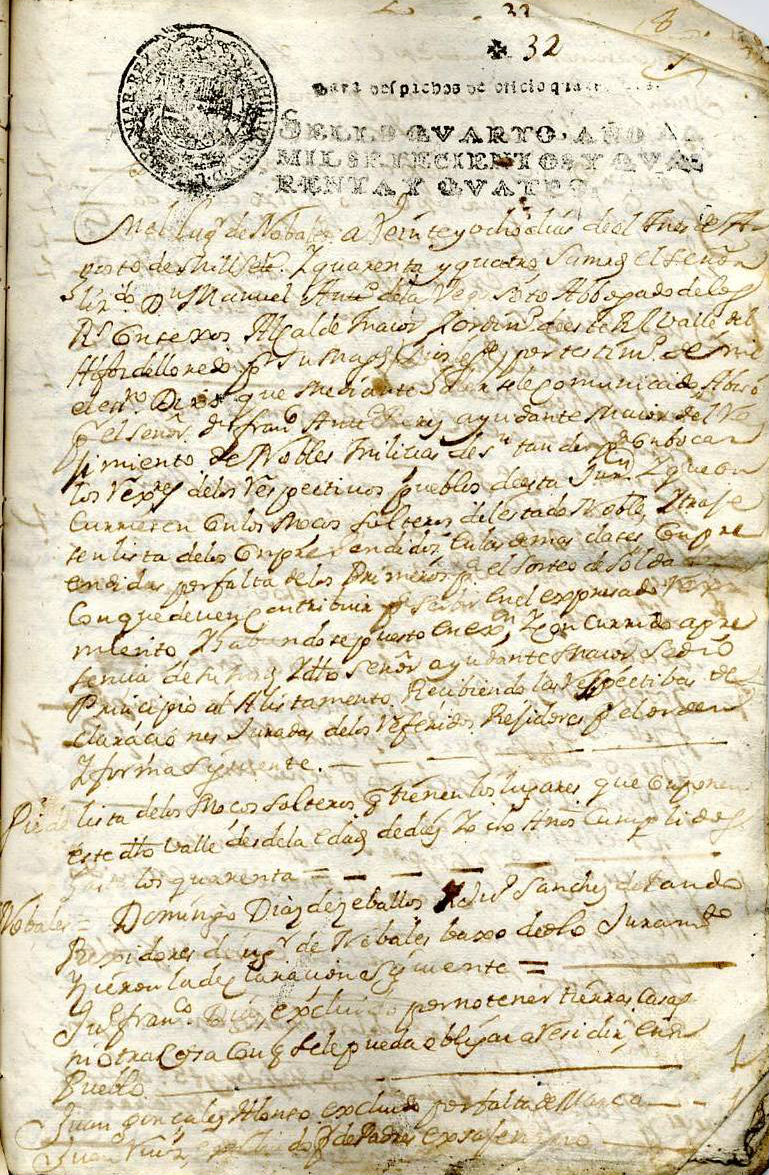 33
32
PHILIPPVS V D G HISPANIAR REX
Para despachos de oficio quatro mrs.
SELLO QVARTO, AÑO DE
MIL SETECIENTOS Y QVA
RENTA Y QVATRO.
En el lugr de Nobales a Veinte y ocho dias de el mes de A
gosto de Mill Setz. Y quarenta y quatro Su mrd el Señor
Lizdo Dn Manuel Anto de la Vega Soto Abbogado de los
Rs Consexos Alcalde maior y ordino de este Rl Valle del
Alfoz de lloredo pr Su Magd Dios le gde por testimo de mi
el esno Dixo que mediante se le a comunicado Abiso
pr el Señor dn franco Anto ayudante Maior del
jimiento de Nobles Milicias de Sn tander pa Conbocar
los Rexres de los Respectivos pueblos de esta Juron Y que con
Currieren Con los Mocos Solteros del estado Noble Y traje
sen lista de los Conprehendidos en las demas claces Conpre
endidas por falta de los Primeros pa el Sorteo de Solda
Con que deven Contribuir pa Servir en el expresado
miento Y habiendose puesto en exon Y Con Currido a pre
sencia de Su mrd Y dho Señor ayudante Maior Se dio
Principio al Alistamento Recibiendo las Respectibas de
claracio nes Juradas de los Referidos Rejidores pr el orden
Y forma Siguiente.
lista de los Mocos Solteros q tienen los lugares que Conponen
este dho Valle desde la edad de diez Y ocho Años Cumplidos
hasta los quarenta =
Nobales = Domingo Diaz de zeballos Y Sanchez de Tande
Rejidores del lugr de Nobales baxo de Juramto
hizieron la declaracion Siguiente =
Jul franco Diaz, excluido por no tener tierras Casas
ni otra Cosa Con q Se le pueda obligar a Residir en el
Pueblo
Juan gonzalez Alonso excluido por falta de Marca
Juan Ruiz, excluido pr de Padre exsajenario